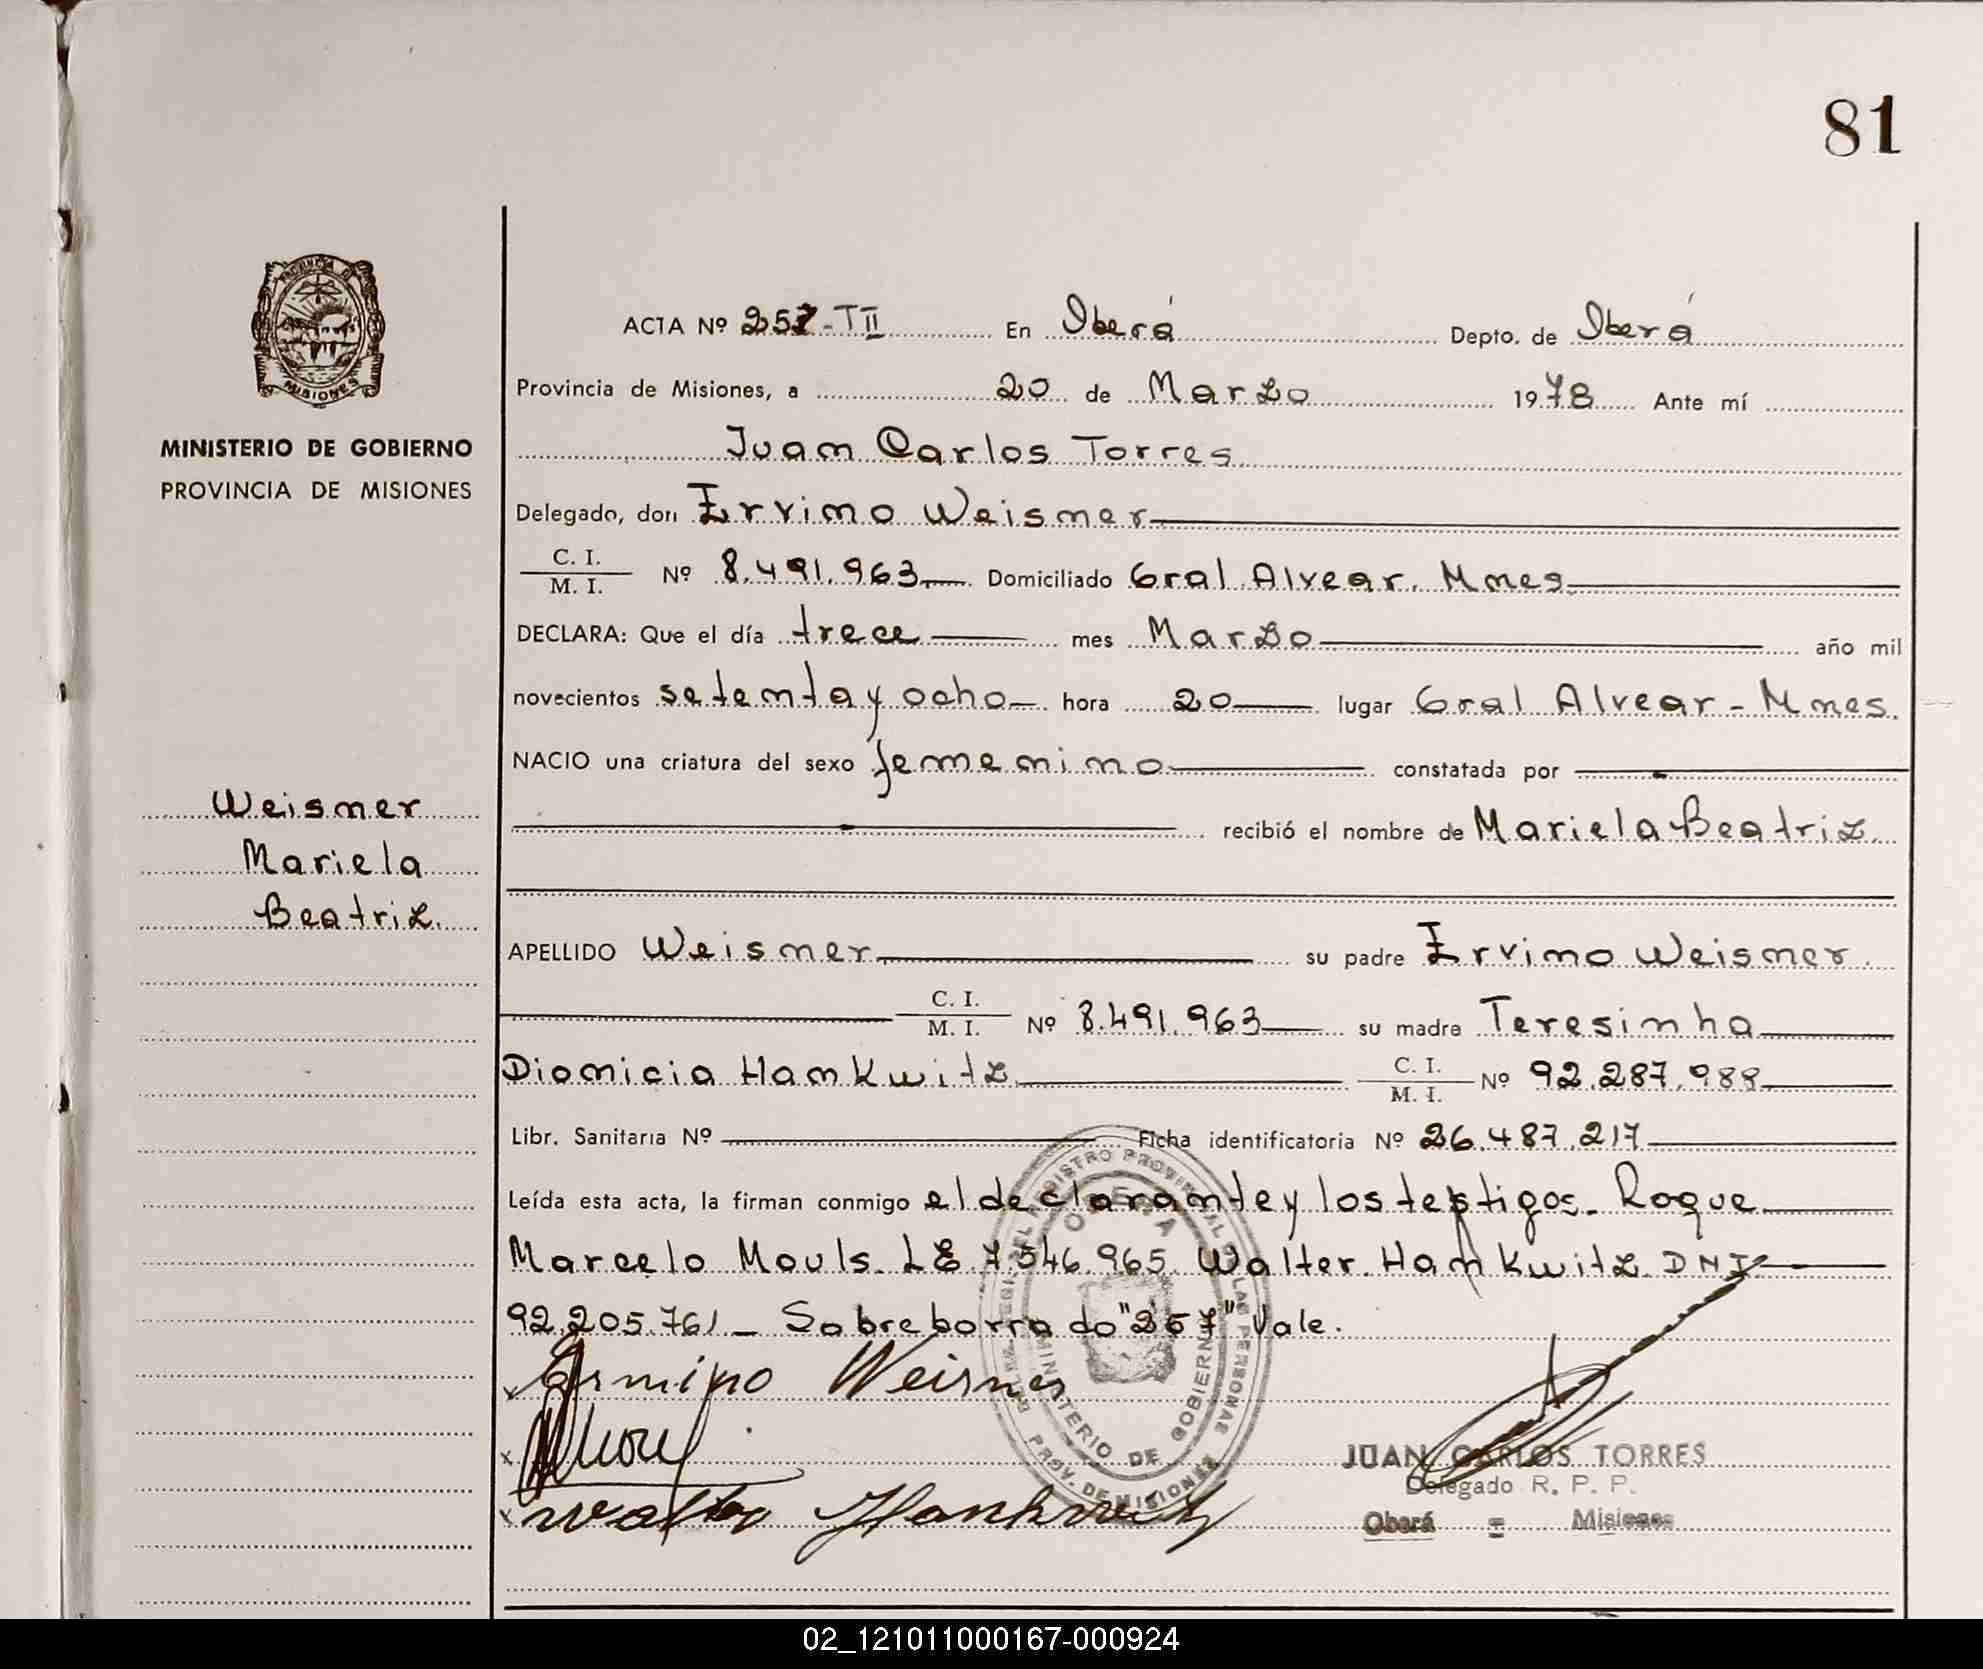 81
ACTA Nº 257-TII En Oberá Depto. de Oberá
Provincia de Misiones, a 20 de Marzo 1978 Ante mí
Juan Carlos Torres
MINISTERIO DE GOBIERNO
PROVINCIA DE MISIONES
Delegado, don Ervino Weisner
C. I. / M. I. Nº 8.491.963 Domiciliado Gral Alvear. Mnes
DECLARA: Que el día trece mes Marzo año mil
novecientos setenta y ocho hora 20 lugar Gral Alvear - Mnes.
NACIO una criatura del sexo femenino constatada por
recibió el nombre de Mariela Beatriz.
Weisner
Mariela
Beatriz.
APELLIDO Weisner su padre Ervino Weisner.
C. I. / M. I. Nº 8.491.963 su madre Teresinha
Dionicia Hankwitz C. I. / M. I. Nº 92.287.988
Libr. Sanitaria Nº Ficha identificatoria Nº 26.487.217
Leída esta acta, la firman conmigo el declarante y los testigos. Roque
Marcelo Mouls. LE 7.546.965. Walter Hankwitz DNI
92.205.761 - Sobreborrado "257" Vale.
Weisner
Walter Hankwitz
JUAN CARLOS TORRES
Delegado R. P. P.
Oberá - Misiones
MINISTERIO DE GOBIERNO
PROV. DE MISIONES
02_121011000167-000924